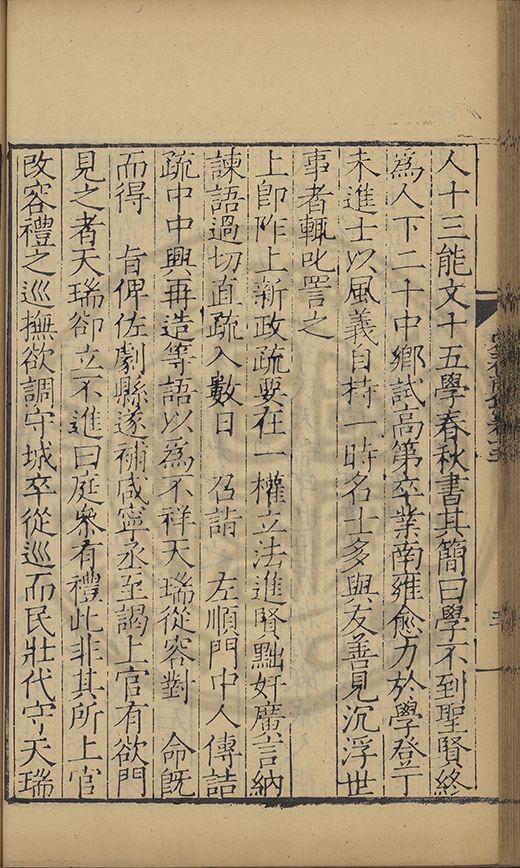 人十三能文十五學春秋書其簡曰學不到聖賢終
爲人下二十中鄉試高第卒業南雍愈力於學登丁
未進士以風義自持一時名士多與友善見沉浮世
事者輒叱詈之
上即阼上新政疏要在一權立法進賢黜奸廣言納
諫語過切直疏入數日 召詣 左順門中人傳詰
疏中中興再造等語以爲不祥天瑞從容對 命既
而得 旨俾佐劇縣遂補咸寧丞至謁上官有欲門
見之者天瑞卻立不進曰庭叅有禮此非其所上官
改容禮之巡撫欲調守城卒從巡而民壯代守天瑞